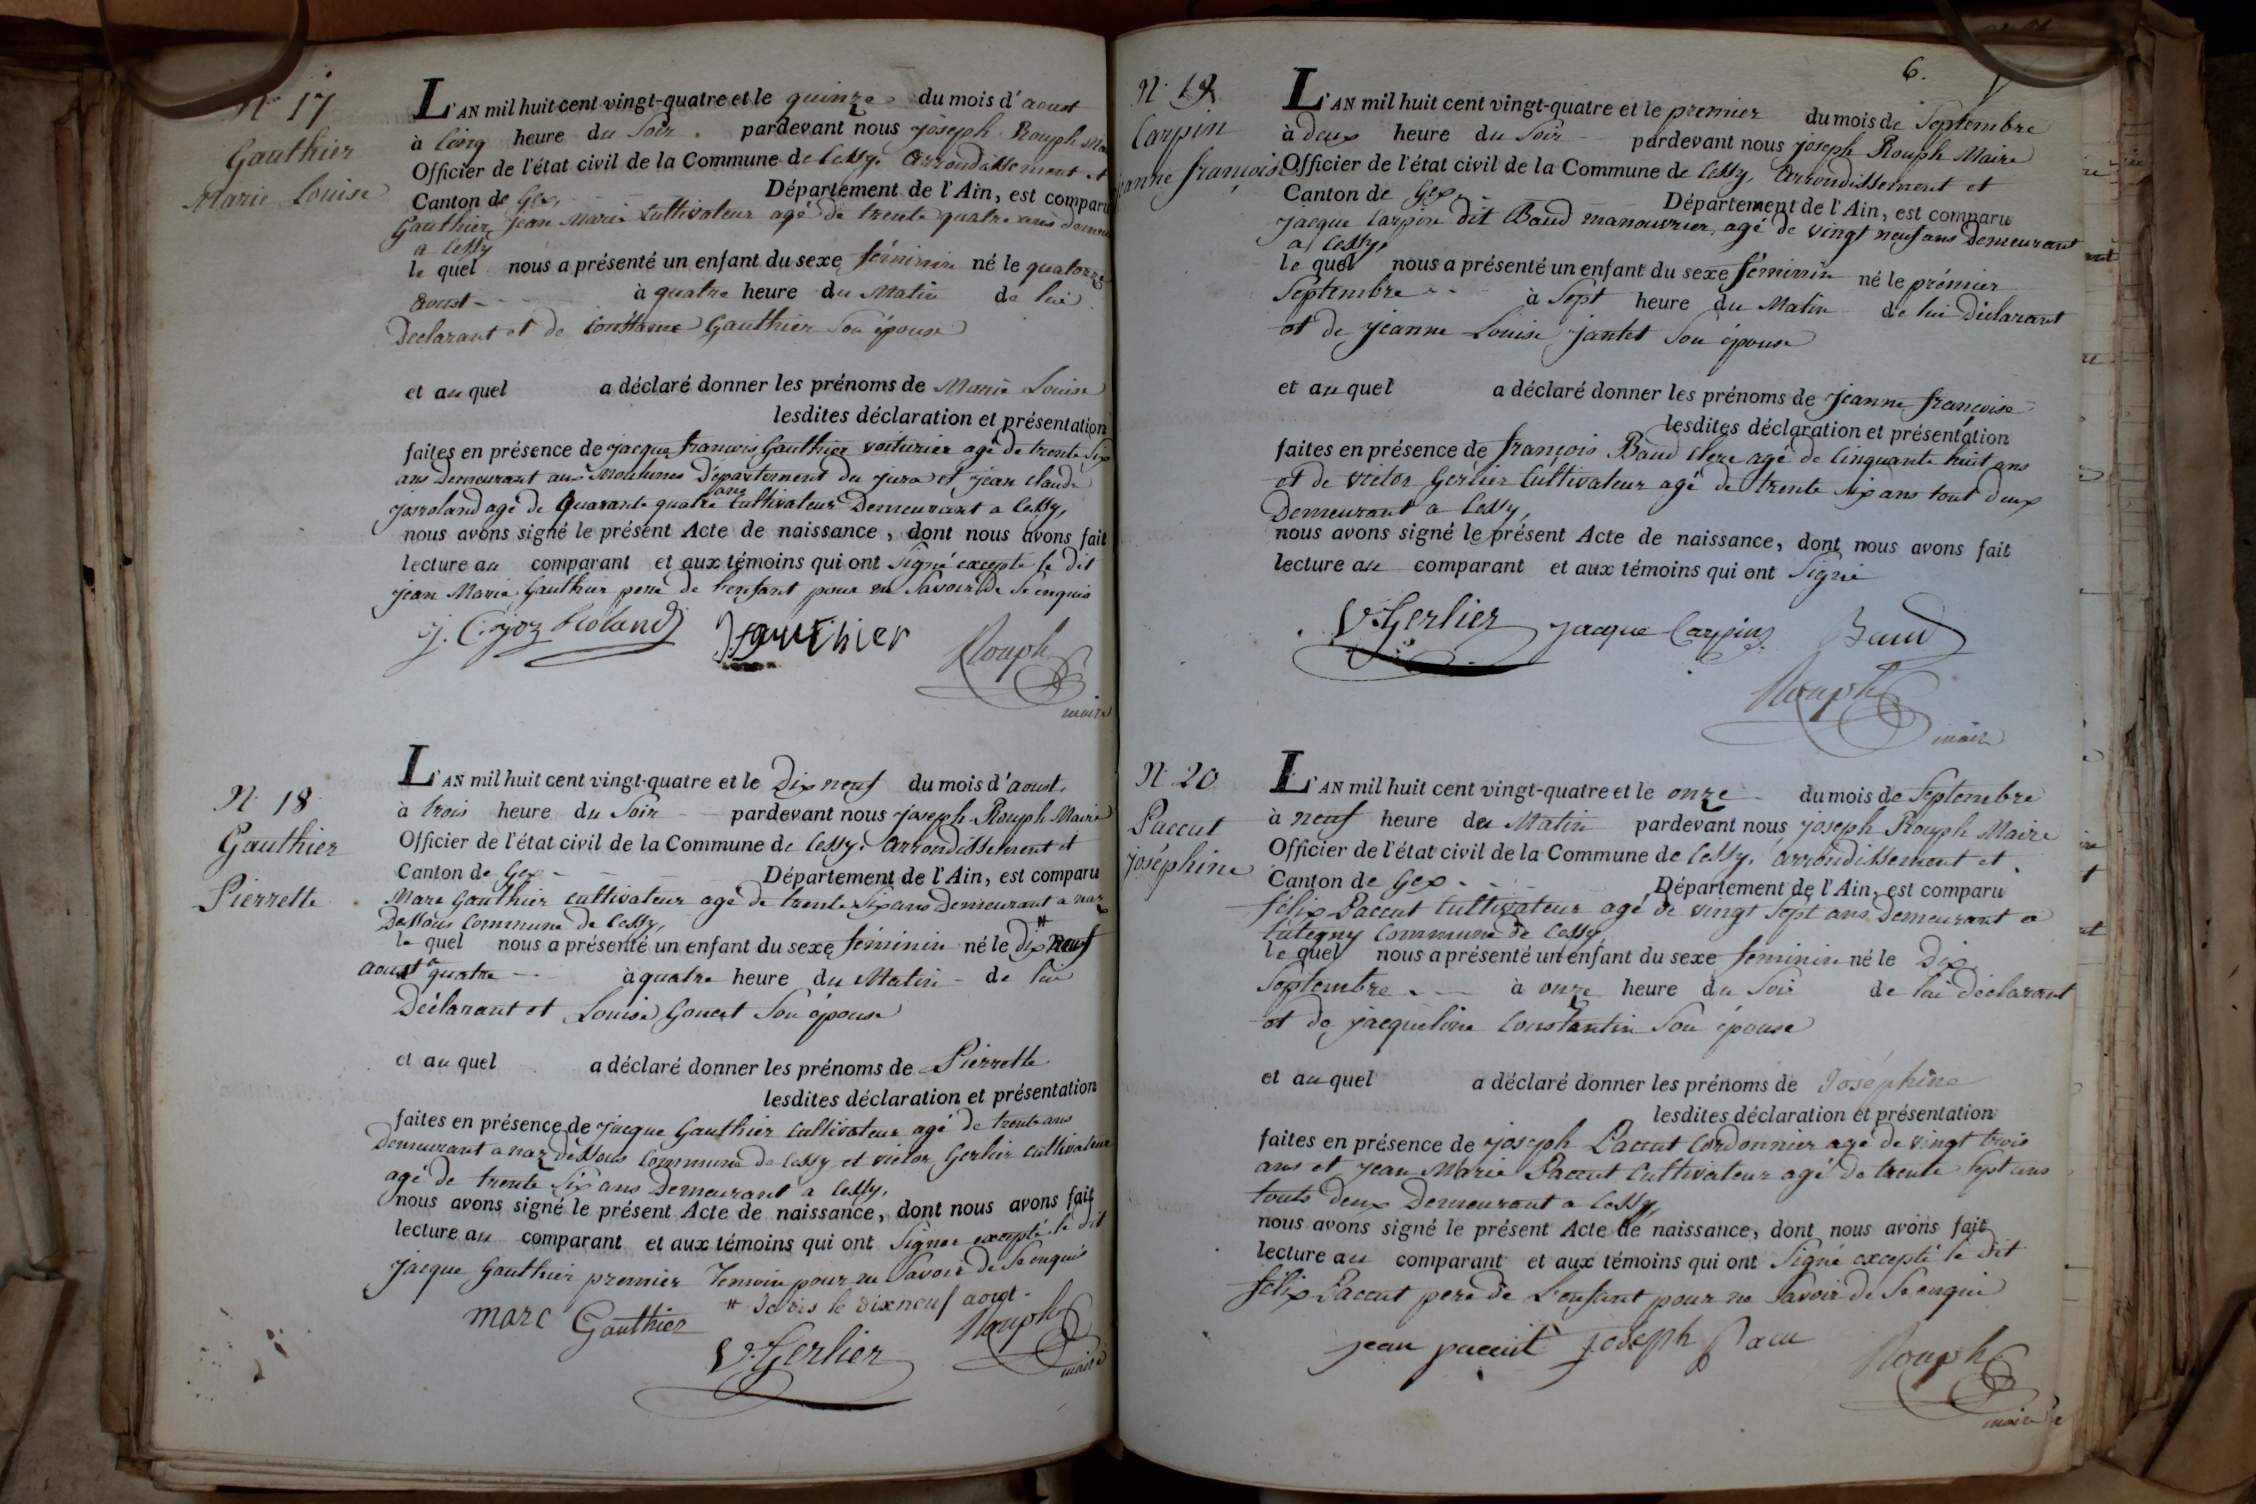 N. 17
Gauthier
Marie Louise
L'AN mil huit cent vingt-quatre et le quinze du mois d'aoust
à cinq heure du Soir. pardevant nous joseph Rouph
Officier de l'état civil de la Commune de Cessy. Arrondissement et
Canton de Gex, Département de l'Ain, est comparu
Gauthier jean Marie Cultivateur agé de trente quatre ans
a Cessy
le quel nous a présenté un enfant du sexe féminin né le quatorze
aoust - à quatre heure du Matin de lui
Déclarant et de Gauthier Son épouse
et au quel a déclaré donner les prénoms de Marie Louise
lesdites déclaration et présentation
faites en présence de jacque francois Gauthier voiturier agé de trente Six
ans Demeurant aux Moulunes Département du jura et jean claude
agé de Quarante quatre ans Cultivateur Demeurant a Cessy,
nous avons signé le présent Acte de naissance, dont nous avons fait
lecture au comparant et aux témoins qui ont Signé excepté le dit
jean Marie Gauthier pere de l'enfant pour ne Savoir De Se enquis
Gauthier
Rouph
maire
N. 18
Gauthier
Pierrette
L'AN mil huit cent vingt-quatre et le Dix neuf du mois d'aoust,
à trois heure du Soir - pardevant nous joseph Rouph Maire
Officier de l'état civil de la Commune de Cessy. Arrondissement et
Canton de Gex - Département de l'Ain, est comparu
Marc Gauthier cultivateur agé de trente Six ans Demeurant a naz
Dessous Commune de Cessy,
le quel nous a présenté un enfant du sexe féminin né le dix # neuf
aoust a quatre - à quatre heure du Matin - de lui
Déclarant et Louise Gonet Son épouse
et au quel a déclaré donner les prénoms de Pierrette
lesdites déclaration et présentation
faites en présence de jacque Gauthier cultivateur agé de trente ans
Demeurant a naz dessous Commune de Cessy et victor Gerlier cultivateur
agé de trente Six ans Demeurant a Cessy,
nous avons signé le présent Acte de naissance, dont nous avons fait
lecture au comparant et aux témoins qui ont Signer excepté le dit
jacque Gauthier premier Temoin pour ne Savoir de Se enquis
# Je dis le dix neuf aout -
marc Gauthier
V. Gerlier
Rouph
maire
6.
N. 19
Carpin
jeanne françoise
L'AN mil huit cent vingt-quatre et le premier du mois de Septembre
à deux heure du Soir - pardevant nous joseph Rouph Maire
Officier de l'état civil de la Commune de Cessy, Arrondissement et
Canton de Gex, - Département de l'Ain, est comparu
jacque Carpin dit Baud manouvrier, agé de vingt neuf ans Demeurant
a Cessy,
le quel nous a présenté un enfant du sexe féminin né le prémier
Septembre - à Sept heure du Matin de lui Déclarant
et de jeanne Louise jantet Son épouse
et au quel a déclaré donner les prénoms de jeanne françoise
lesdites déclaration et présentation
faites en présence de françois Baud Clerc agé de Cinquante huit ans
et de victor Gerlier Cultivateur agé de trente six ans tout deux
Demeurant a Cessy,
nous avons signé le présent Acte de naissance, dont nous avons fait
lecture au comparant et aux témoins qui ont Signé
V. Gerlier jacque Carpin Baud
Rouph
maire
N. 20
Paccut
joséphine
L'AN mil huit cent vingt-quatre et le onze - du mois de Septembre
à neuf heure du Matin pardevant nous joseph Rouph Maire
Officier de l'état civil de la Commune de Cessy, Arrondissement et
Canton de Gex - Département de l'Ain, est comparu
félix Paccut Cultivateur agé de vingt Sept ans Demeurant a
tutegny Commune de Cessy
le quel nous a présenté un enfant du sexe feminin né le Dix
Septembre - à onze heure du Soir de lui déclarant
et de jacqueline Constantin Son épouse
et au quel a déclaré donner les prénoms de Joséphine
lesdites déclaration et présentation
faites en présence de joseph Paccut Cordonnier agé de vingt trois
ans et jean Marie Paccut Cultivateur agé de trente Sept ans
touts deux Demeurant a Cessy,
nous avons signé le présent Acte de naissance, dont nous avons fait
lecture au comparant et aux témoins qui ont Signé excepté le dit
félix Paccut pere de L'enfant pour ne Savoir de Se enqui
jean paccut joseph Pacu
Rouph
maire